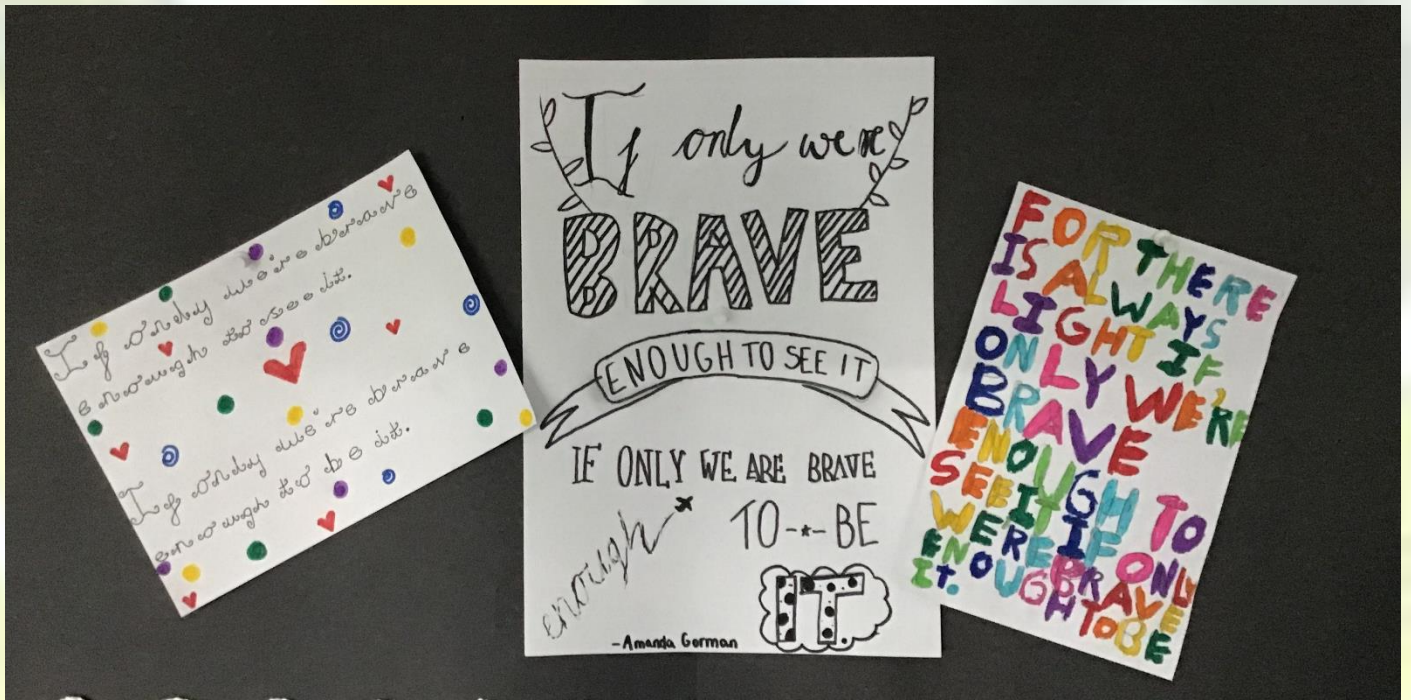 If only we're brave
enough to see it.
If only we're brave
enough to be it.
If only we're
BRAVE
ENOUGH TO SEE IT
IF ONLY WE ARE BRAVE
enough TO-*-BE
IT
-Amanda Gorman
FOR THERE
IS ALWAYS
LIGHT IF,
ONLY WE'RE
BRAVE
ENOUGH TO
SEE IT IF ONLY
WE'RE BRAVE
ENOUGH TO BE
IT.